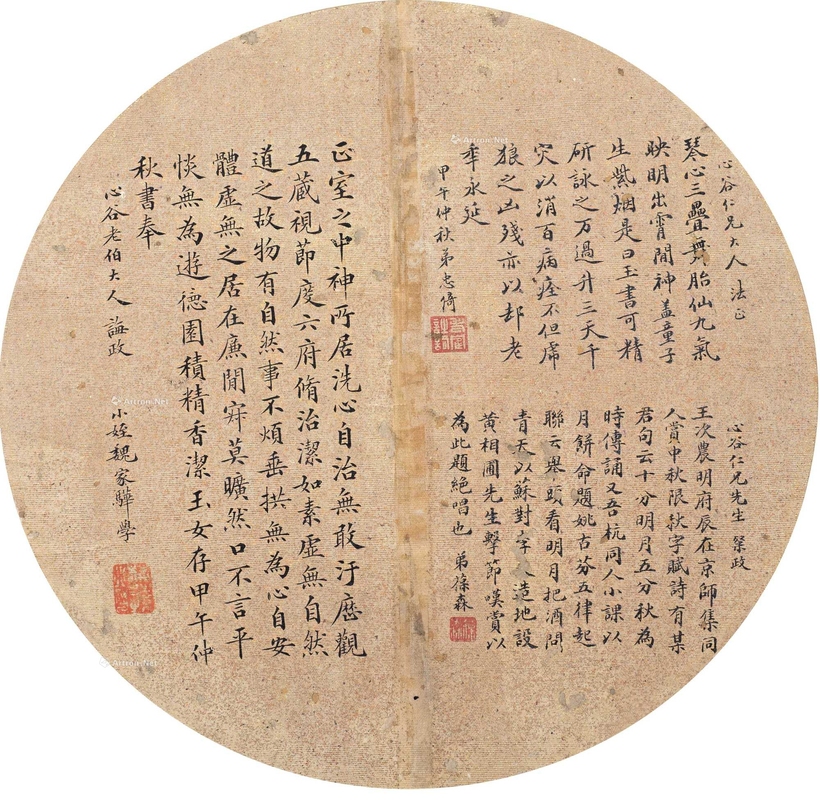 心谷仁兄大人 法正
琴心三疊舞胎仙九氣
映明出霄間神盖童子
生紫烟是曰玉書可精
研詠之万過升三天千
灾以消百病痊不但虎
狼之凶殘亦以却老
年永延
甲午仲秋弟忠倚
心谷仁兄先生 粲政
王次農明府辰在京師集同
人賞中秋限秋字賦詩有某
君句云十分明月五分秋為
時傳誦又吾杭同人小課以
月餅命題姚古芬五律起
聯云舉頭看明月把酒問
青天以蘇對李人造地設
黃相圃先生擊節嘆賞以
為此題絕唱也 弟篠森
正室之中神所居洗心自治無敢汙歷觀
五藏視節度六府脩治潔如素虛無自然
道之故物有自然事不煩垂拱無為心自安
體虛無之居在廉間寂莫曠然口不言平
惔無為遊德園積精香潔玉女存甲午仲
秋書奉
心谷老伯大人 誨政
小姪魏家驊學
Artron.Net
Artron.Net
Artron.Net